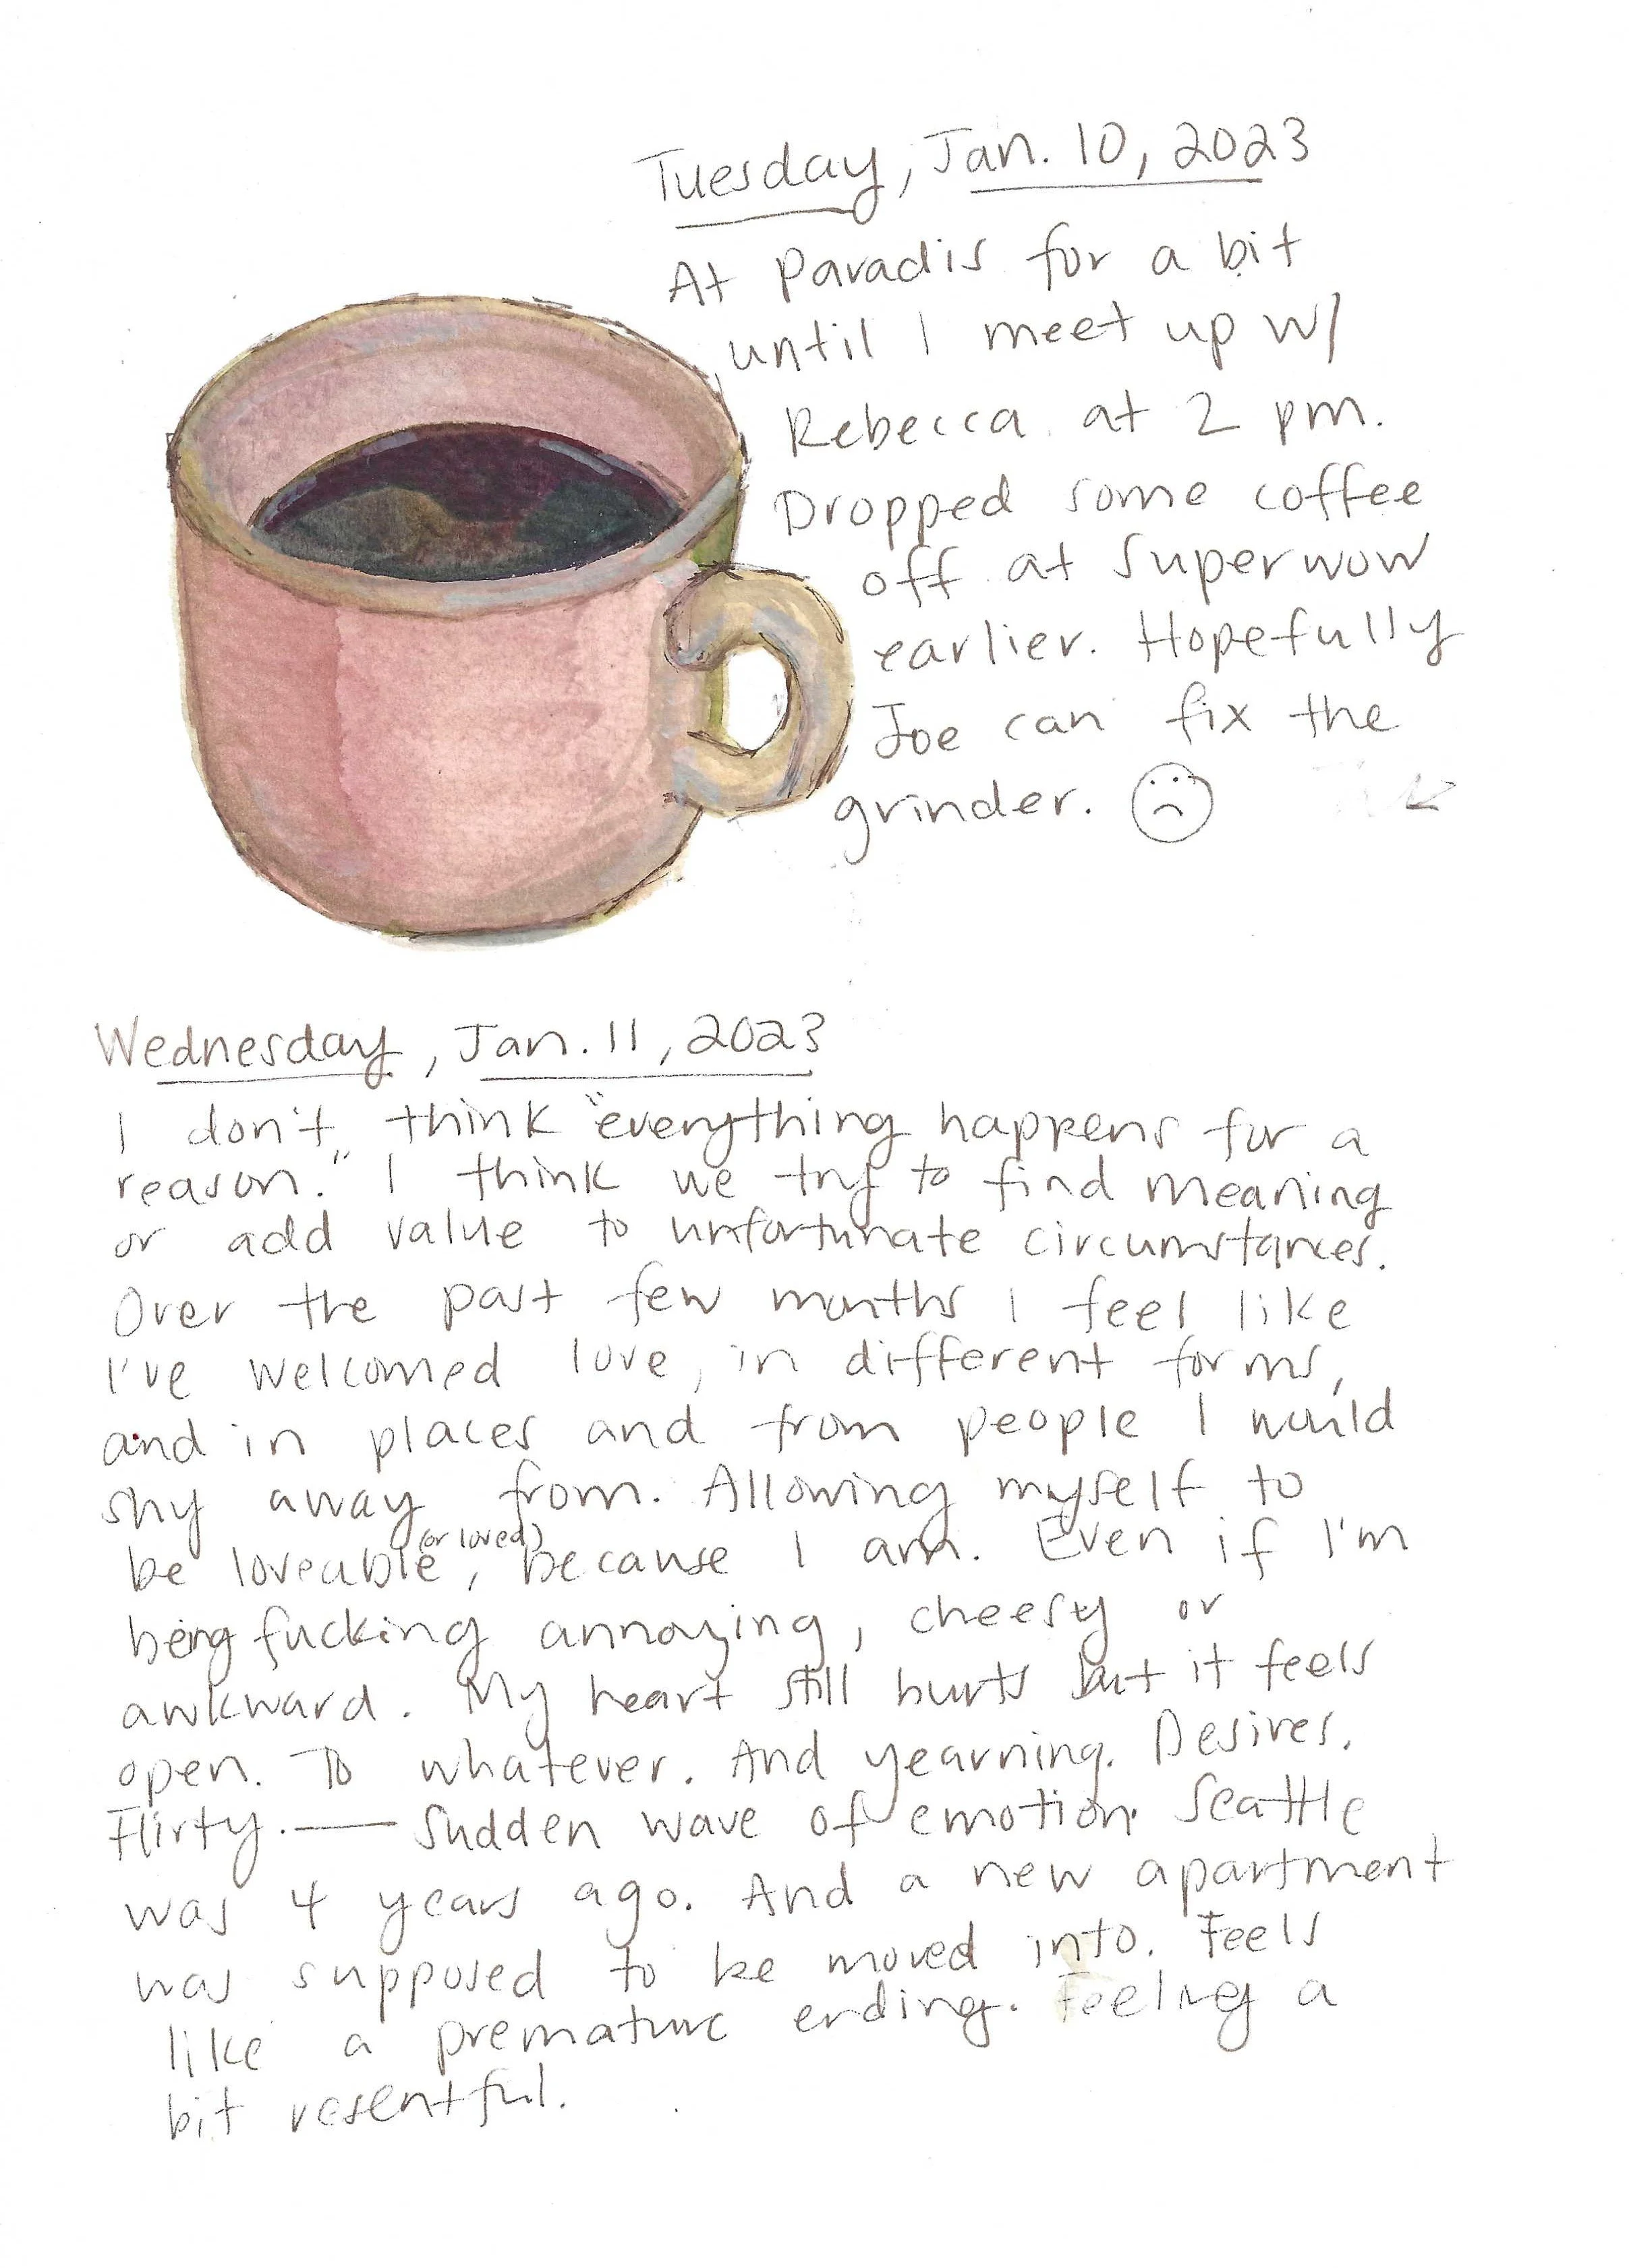 Tuesday, Jan. 10, 2023
At Paradis for a bit
until I meet up w/
Rebecca at 2 pm.
Dropped some coffee
off at Superwow
earlier. Hopefully
Joe can fix the
grinder.
Wednesday, Jan. 11, 2023
I don't think "everything happens for a
reason." I think we try to find meaning
or add value to unfortunate circumstances.
Over the past few months I feel like
I've welcomed love, in different forms,
and in places and from people I would
shy away from. Allowing myself to
be loveable (or loved), because I am. Even if I'm
being fucking annoying, cheesy or
awkward. My heart still hurts but it feels
open. To whatever. And yearning. Desires.
Flirty. — Sudden wave of emotion. Seattle
was 4 years ago. And a new apartment
was supposed to be moved into. Feels
like a premature ending. Feeling a
bit resentful.